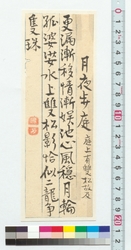 月夜步庭 庭上有雙松故及
更漏漸移情漸娛池心風穩月輪
孤婆娑水上雙松影恰似二龍爭
隻珠